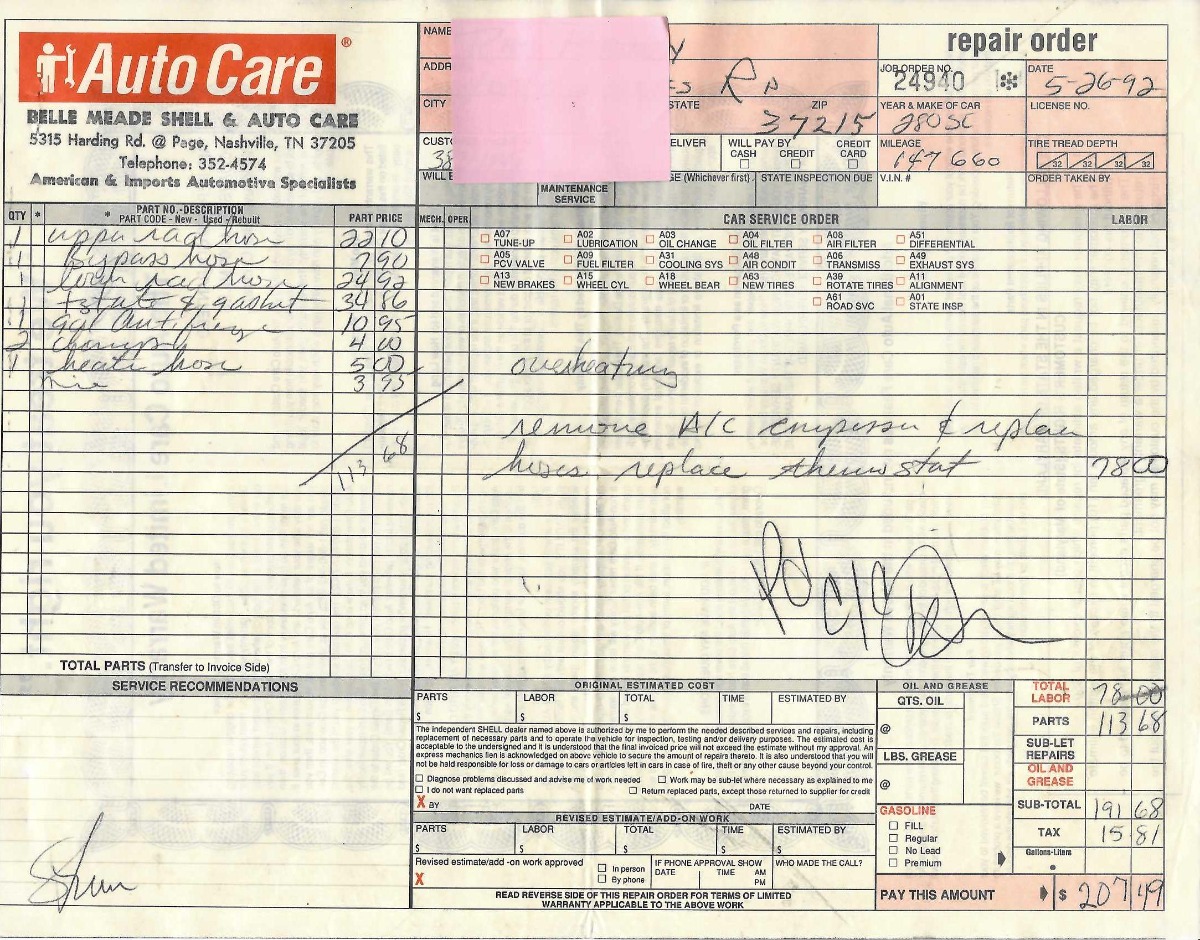 Auto Care ®
BELLE MEADE SHELL & AUTO CARE
5315 Harding Rd. @ Page, Nashville, TN 37205
Telephone: 352-4574
American & Imports Automotive Specialists
repair order
NAME
JOB ORDER NO. 24940
DATE 5-26-92
ADDR Rd
CITY STATE ZIP 37215
YEAR & MAKE OF CAR 280 SC
LICENSE NO.
CUST ELIVER WILL PAY BY CASH CREDIT CREDIT CARD
MILEAGE 147660
TIRE TREAD DEPTH
32 32 32 32
WILL E MAINTENANCE SERVICE GE (Whichever first) STATE INSPECTION DUE
V.I.N. #
ORDER TAKEN BY
QTY * * PART NO.-DESCRIPTION PART CODE - New - Used - Rebuilt PART PRICE
1 upper rad hose 22 10
1 bypass hose 7 90
1 lower rad hose 24 92
1 tstate & gasket 34 86
1 gal Antifreeze 10 95
2 clamps 4 00
1 heater hose 5 00
3 95
113 68
TOTAL PARTS (Transfer to Invoice Side)
SERVICE RECOMMENDATIONS
MECH. OPER. CAR SERVICE ORDER LABOR
A07 TUNE-UP A02 LUBRICATION A03 OIL CHANGE A04 OIL FILTER A08 AIR FILTER A51 DIFFERENTIAL
A05 PCV VALVE A09 FUEL FILTER A31 COOLING SYS A48 AIR CONDIT A06 TRANSMISS A49 EXHAUST SYS
A13 NEW BRAKES A15 WHEEL CYL A18 WHEEL BEAR A63 NEW TIRES A39 ROTATE TIRES A11 ALIGNMENT
A61 ROAD SVC A01 STATE INSP
overheating
remove A/C compressor & replace
hoses replace thermostat 78 00
Pd
ORIGINAL ESTIMATED COST
PARTS $ LABOR $ TOTAL $ TIME ESTIMATED BY
The independent SHELL dealer named above is authorized by me to perform the needed described services and repairs, including
replacement of necessary parts and to operate the vehicle for inspection, testing and/or delivery purposes. The estimated cost is
acceptable to the undersigned and it is understood that the final invoiced price will not exceed the estimate without my approval. An
express mechanics lien is acknowledged on above vehicle to secure the amount of repairs thereto. It is also understood that you will
not be held responsible for loss or damage to cars or articles left in cars in case of fire, theft or any other cause beyond your control.
Diagnose problems discussed and advise me of work needed Work may be sub-let where necessary as explained to me
I do not want replaced parts Return replaced parts, except those returned to supplier for credit
X BY DATE
REVISED ESTIMATE/ADD-ON WORK
PARTS $ LABOR $ TOTAL $ TIME $ ESTIMATED BY $
Revised estimate/add -on work approved In person By phone
X
IF PHONE APPROVAL SHOW DATE TIME AM PM
WHO MADE THE CALL?
READ REVERSE SIDE OF THIS REPAIR ORDER FOR TERMS OF LIMITED
WARRANTY APPLICABLE TO THE ABOVE WORK
OIL AND GREASE
QTS. OIL
@
LBS. GREASE
@
GASOLINE
FILL
Regular
No Lead
Premium
TOTAL LABOR 78 00
PARTS 113 68
SUB-LET REPAIRS
OIL AND GREASE
SUB-TOTAL 191 68
TAX 15 81
Gallons-Liters
PAY THIS AMOUNT $ 207 49